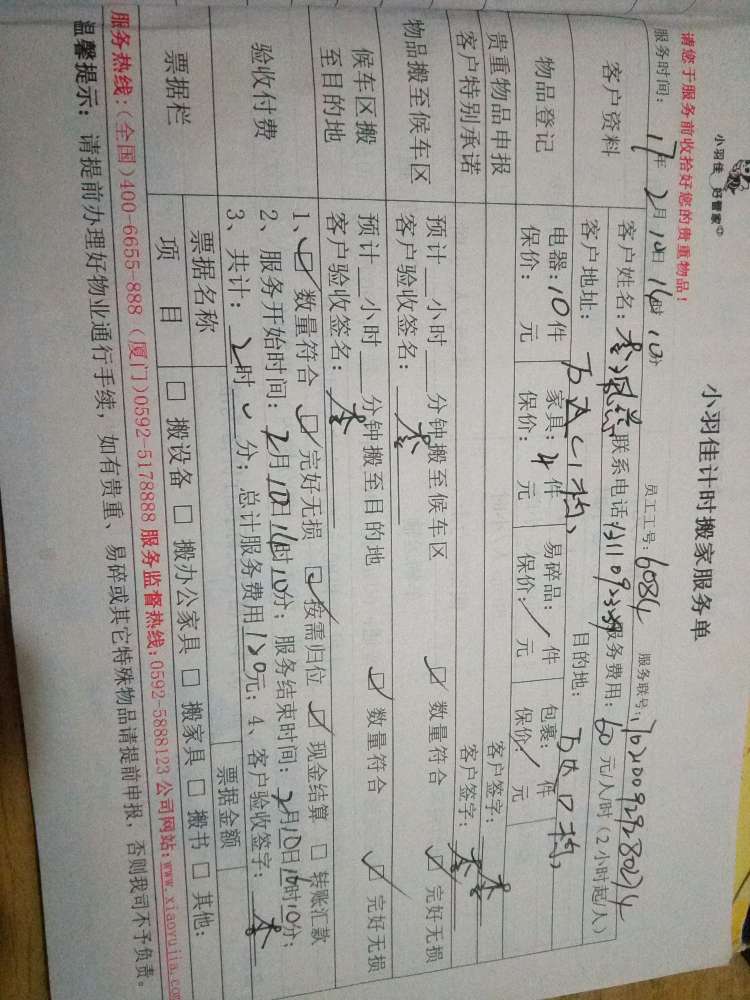 小羽佳 好管家
小羽佳计时搬家服务单
请您于服务前收拾好您的贵重物品！
员工工号：6084 服务联号：
服务时间：17年 2月10日 16时10分
客户资料 客户姓名：李 联系电话： 服务费用：60元/人/时（2小时起/人）
客户地址： 目的地：
物品登记 电器：10件 家具：4件 易碎品：/件 包裹： 件
保价： 元 保价： 元 保价：/元 保价：/元
贵重物品申报 客户签字：李
客户特别承诺 客户签字：李
物品搬至候车区 预计__小时__分钟搬至候车区 ☑ 数量符合 ☑ 完好无损
客户验收签名：李
候车区搬至目的地 预计__小时__分钟搬至目的地 ☑ 数量符合 ☑ 完好无损
客户验收签名：李
验收付费 1、☑ 数量符合 ☑ 完好无损 ☑ 按需归位 ☑ 现金结算 □ 转账汇款
2、服务开始时间：2月10日16时10分；服务结束时间：2月10日 时10分；
3、共计：2时0分；总计服务费用120元；4、客户验收签字：李
票据栏 票据名称 票据金额
项 目 □ 搬设备 □ 搬办公家具 □ 搬家具 □ 搬书 □ 其他：
服务热线：(全国)400-6655-888 (厦门)0592-5178888 服务监督热线：0592-5888123 公司网站：www.xiaoyujia.com
温馨提示：请提前办理好物业通行手续，如有贵重、易碎或其它特殊物品请提前申报，否则我司不予负责。